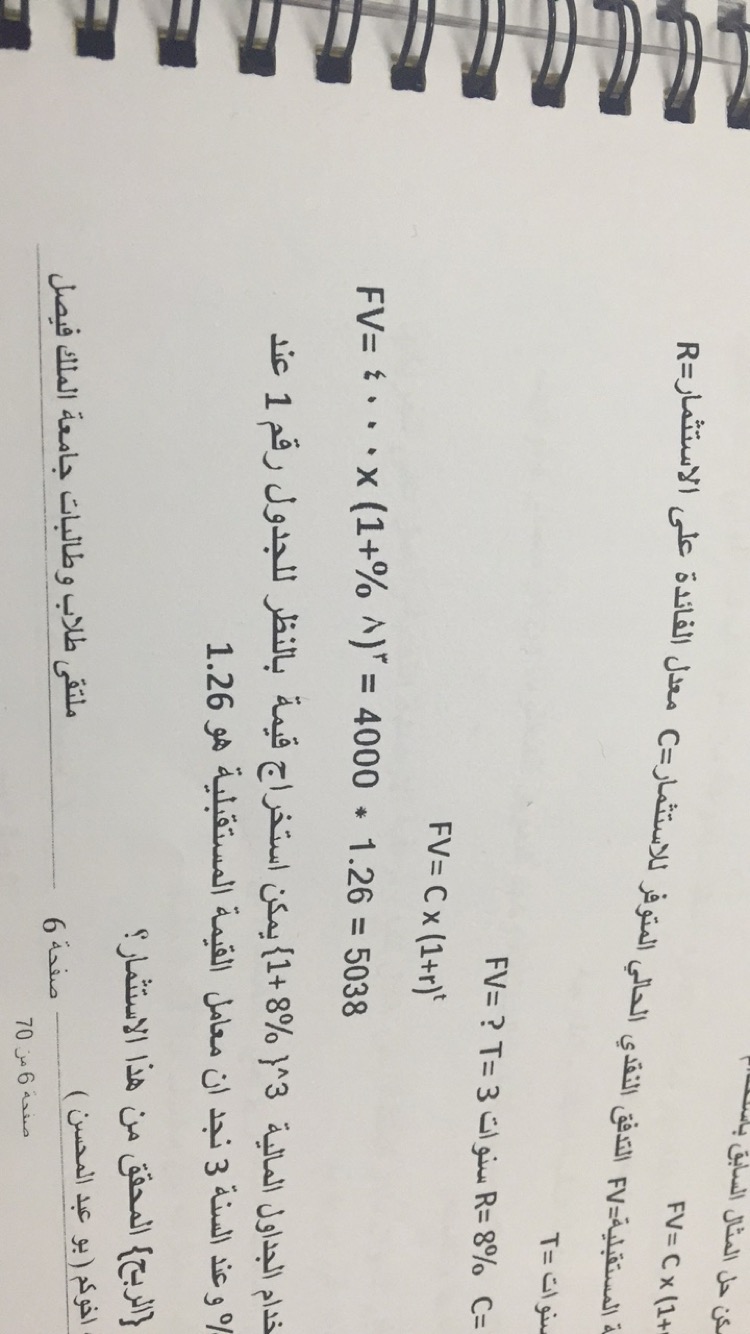 كن حل المثال السابق باستخدام
FV= C x (1+
R=معدل الفائدة على الاستثمار C=التدفق النقدي الحالي المتوفر للاستثمار FV=ة المستقبلية
T= سنوات
FV= ? T= 3 سنوات R= 8% C=
FV= C x (1+r)ᵗ
FV= ٤٠٠٠ x (1+% ٨)³ = 4000 * 1.26 = 5038
خدام الجداول المالية 3^{ 1+ 8%} يمكن استخراج قيمة بالنظر للجدول رقم 1 عند
% وعند السنة 3 نجد ان معامل القيمة المستقبلية هو 1.26
{الربح} المحقق من هذا الاستثمار؟
اخوكم ( بو عبد المحسن ) صفحة 6 ملتقى طلاب وطالبات جامعة الملك فيصل
صفحة 6 من 70